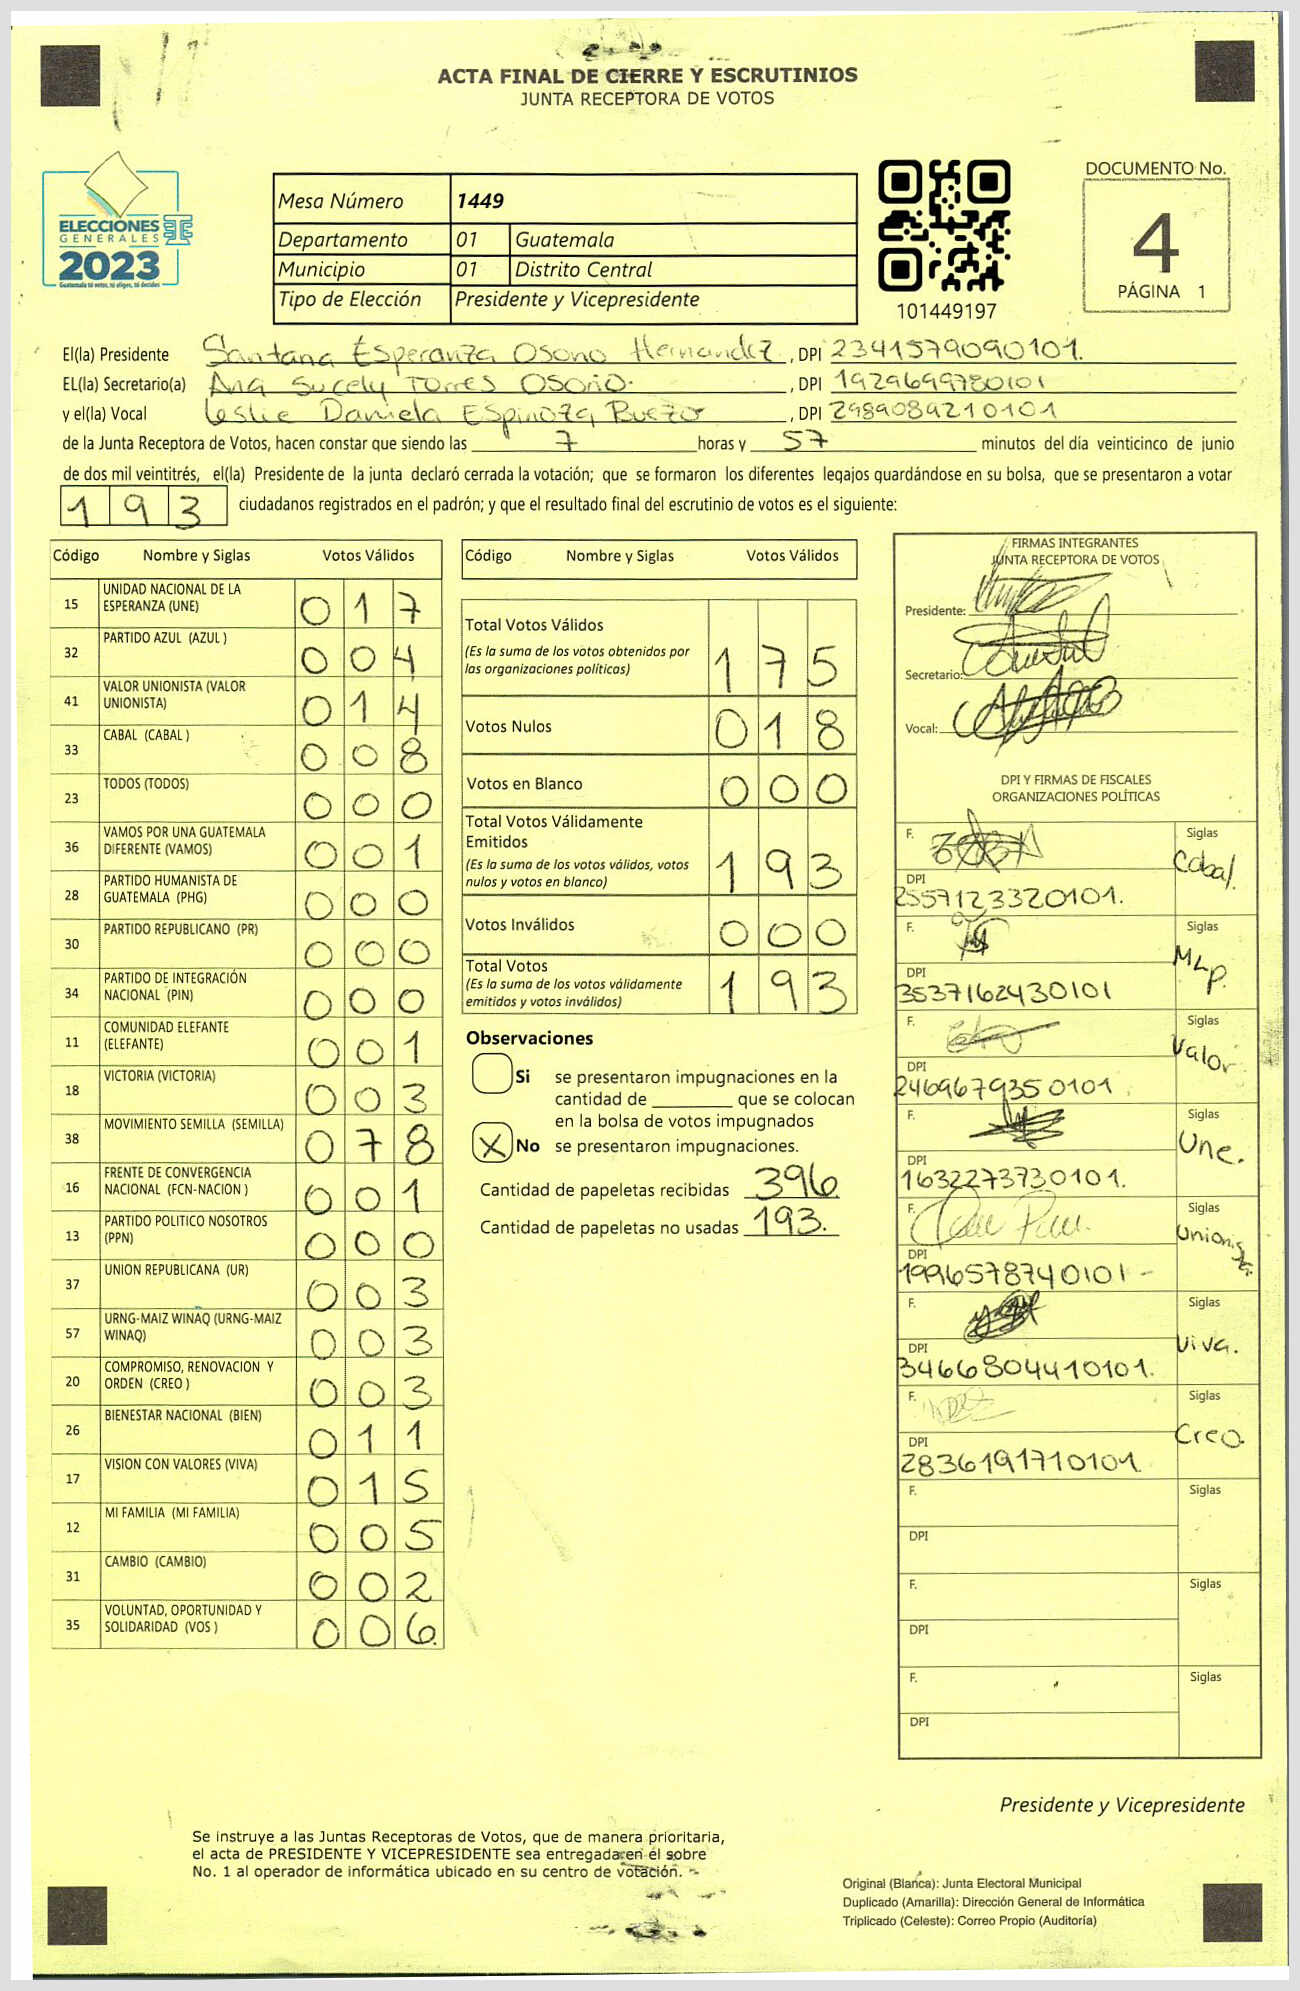 ACTA FINAL DE CIERRE Y ESCRUTINIOS
JUNTA RECEPTORA DE VOTOS
ELECCIONES
GENERALES
2023
Guatemala tú votas, tú eliges, tú decides
Mesa Número 1449
Departamento 01 Guatemala
Municipio 01 Distrito Central
Tipo de Elección Presidente y Vicepresidente
101449197
DOCUMENTO No.
4
PÁGINA 1
El(la) Presidente Santana Esperanza Osorio Hernandez, DPI 2341579090101.
EL(la) Secretario(a) Ana Sucely Torres Osorio. , DPI 1929699780101
y el(la) Vocal Leslie Daniela Espinoza , DPI 2989089210101
de la Junta Receptora de Votos, hacen constar que siendo las 7 horas y 57 minutos del día veinticinco de junio
de dos mil veintitrés, el(la) Presidente de la junta declaró cerrada la votación; que se formaron los diferentes legajos guardándose en su bolsa, que se presentaron a votar
193 ciudadanos registrados en el padrón; y que el resultado final del escrutinio de votos es el siguiente:
Código Nombre y Siglas Votos Válidos
15 UNIDAD NACIONAL DE LA
ESPERANZA (UNE) 017
32 PARTIDO AZUL (AZUL ) 004
41 VALOR UNIONISTA (VALOR
UNIONISTA) 014
33 CABAL (CABAL ) 008
23 TODOS (TODOS) 000
36 VAMOS POR UNA GUATEMALA
DIFERENTE (VAMOS) 001
28 PARTIDO HUMANISTA DE
GUATEMALA (PHG) 000
30 PARTIDO REPUBLICANO (PR) 000
34 PARTIDO DE INTEGRACIÓN
NACIONAL (PIN) 000
11 COMUNIDAD ELEFANTE
(ELEFANTE) 001
18 VICTORIA (VICTORIA) 003
38 MOVIMIENTO SEMILLA (SEMILLA) 078
16 FRENTE DE CONVERGENCIA
NACIONAL (FCN-NACION ) 001
13 PARTIDO POLITICO NOSOTROS
(PPN) 000
37 UNION REPUBLICANA (UR) 003
57 URNG-MAIZ WINAQ (URNG-MAIZ
WINAQ) 003
20 COMPROMISO, RENOVACION Y
ORDEN (CREO ) 003
26 BIENESTAR NACIONAL (BIEN) 011
17 VISION CON VALORES (VIVA) 015
12 MI FAMILIA (MI FAMILIA) 005
31 CAMBIO (CAMBIO) 002
35 VOLUNTAD, OPORTUNIDAD Y
SOLIDARIDAD (VOS ) 006.
Código Nombre y Siglas Votos Válidos
Total Votos Válidos
(Es la suma de los votos obtenidos por
las organizaciones políticas) 175
Votos Nulos 018
Votos en Blanco 000
Total Votos Válidamente
Emitidos
(Es la suma de los votos válidos, votos
nulos y votos en blanco) 193
Votos Inválidos 000
Total Votos
(Es la suma de los votos válidamente
emitidos y votos inválidos) 193
Observaciones
Si se presentaron impugnaciones en la
cantidad de ________ que se colocan
en la bolsa de votos impugnados
X No se presentaron impugnaciones.
Cantidad de papeletas recibidas 396
Cantidad de papeletas no usadas 193.
FIRMAS INTEGRANTES
JUNTA RECEPTORA DE VOTOS
Presidente:
Secretario:
Vocal:
DPI Y FIRMAS DE FISCALES
ORGANIZACIONES POLÍTICAS
F. Siglas
Cabal.
DPI
2557123320101.
F. Siglas
MLP.
DPI
3537162430101
F. Siglas
Valor
DPI
2469679350101
F. Siglas
Une.
DPI
1632273730101.
F. Siglas
Unionista
DPI
1996578740101-
F. Siglas
Viva.
DPI
3466804410101.
F. Siglas
Creo.
DPI
2836191710101
F. Siglas
DPI
F. Siglas
DPI
F. Siglas
DPI
Presidente y Vicepresidente
Se instruye a las Juntas Receptoras de Votos, que de manera prioritaria,
el acta de PRESIDENTE Y VICEPRESIDENTE sea entregada en el sobre
No. 1 al operador de informática ubicado en su centro de votación.
Original (Blanca): Junta Electoral Municipal
Duplicado (Amarilla): Dirección General de Informática
Triplicado (Celeste): Correo Propio (Auditoría)